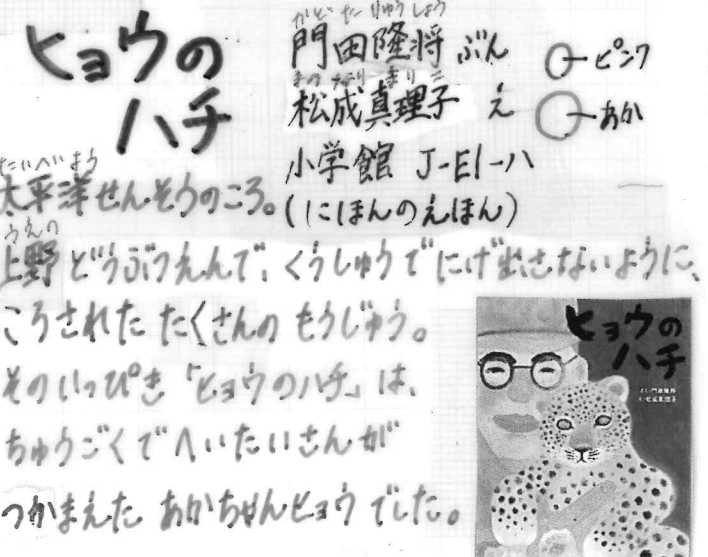 ヒョウの
ハチ
かどた りゅうしょう
門田隆将 ぶん
まつなり まりこ
松成真理子 え
小学館 J-E1-ハ
(にほんのえほん)
ピンク
あか
たいへいよう
太平洋せんそうのころ。
うえの
上野どうぶつえんで、くうしゅうでにげ出さないように、
ころされた たくさんの もうじゅう。
そのいっぴき「ヒョウのハチ」は、
ちゅうごくでへいたいさんが
つかまえた あかちゃんヒョウ でした。
ヒョウの
ハチ